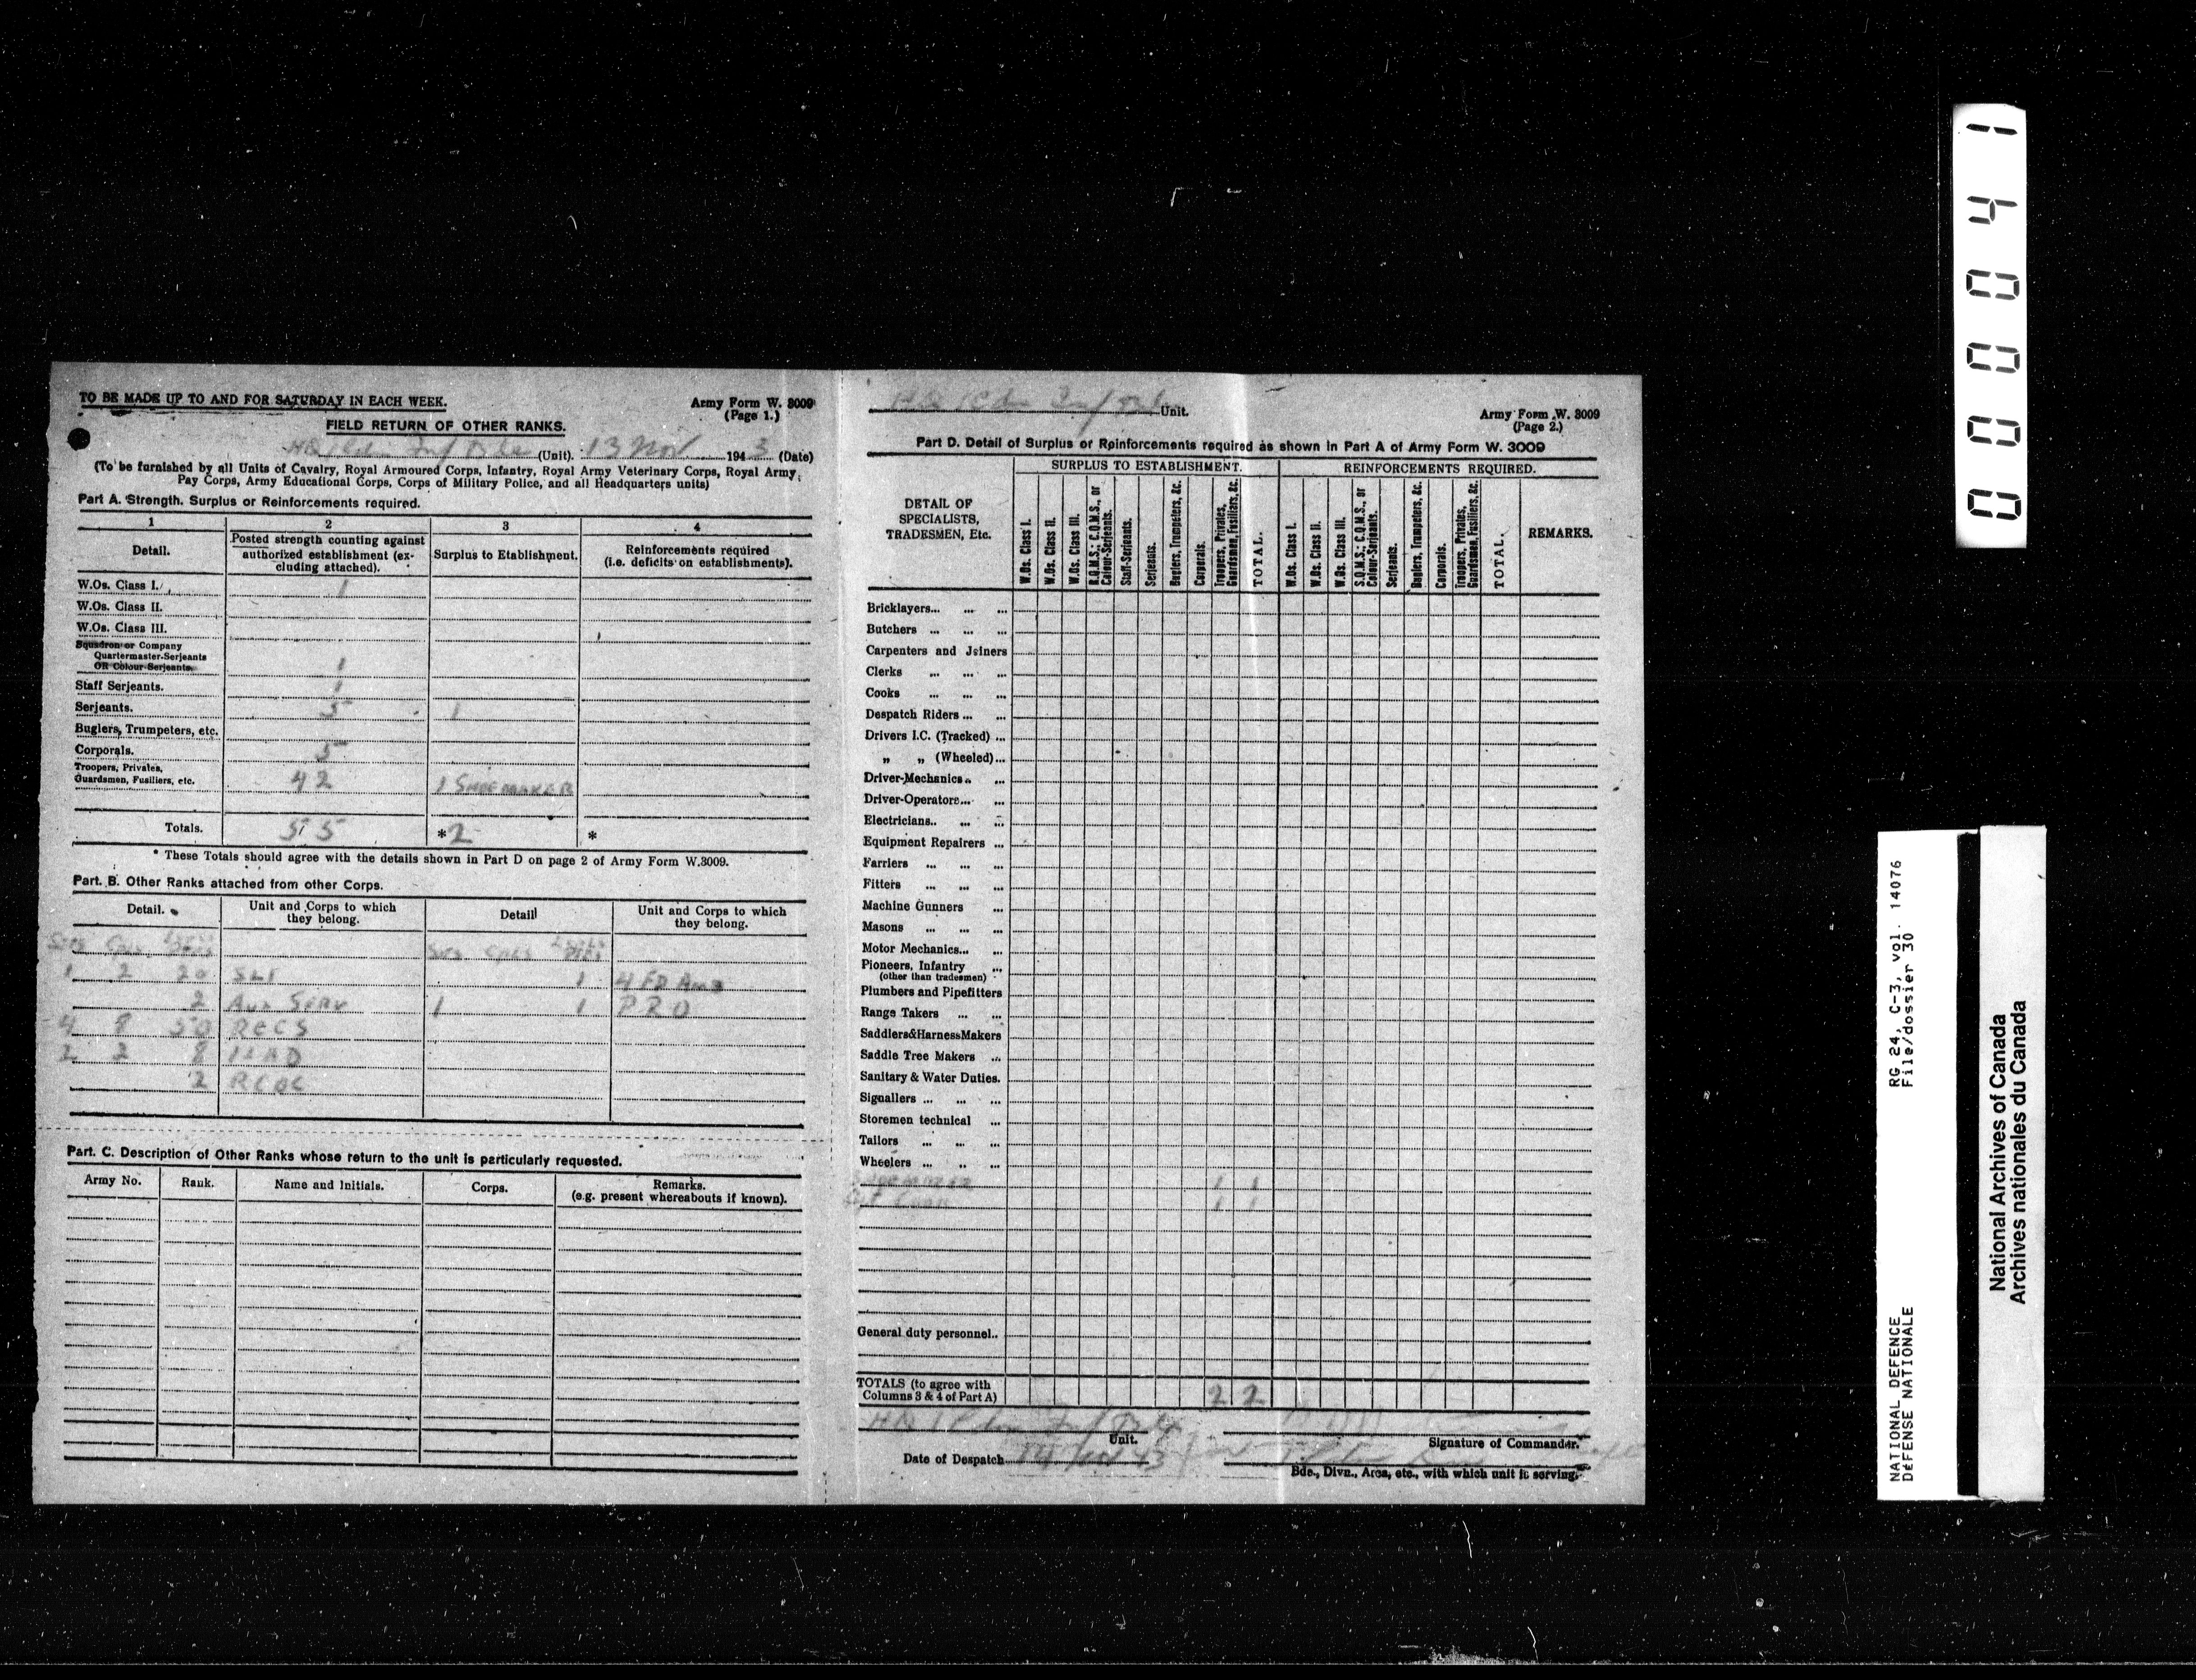 TO BE MADE UP TO AND FOR SATURDAY IN EACH WEEK.
Army Form W. 3009
(Page 1.)
FIELD RETURN OF OTHER RANKS.
HQ 1 Cdn Inf Bde (Unit). 13 Nov 1943 (Date)
(To be furnished by all Units of Cavalry, Royal Armoured Corps, Infantry, Royal Army Veterinary Corps, Royal Army
Pay Corps, Army Educational Corps, Corps of Military Police, and all Headquarters units)
Part A. Strength. Surplus or Reinforcements required.
1 2 3 4
Detail.
Posted strength counting against
authorized establishment (ex-
cluding attached).
Surplus to Etablishment.
Reinforcements required
(i.e. deficits on establishments).
W.Os. Class I. 1
W.Os. Class II.
W.Os. Class III.
Squadron or Company
Quartermaster-Serjeants
OR Colour-Serjeants. 1
Staff Serjeants. 1
Serjeants. 5 1
Buglers, Trumpeters, etc.
Corporals. 5
Troopers, Privates,
Guardsmen, Fusiliers, etc. 42 1 SHOEMAKER
Totals. 55 *2 *
* These Totals should agree with the details shown in Part D on page 2 of Army Form W.3009.
Part. B. Other Ranks attached from other Corps.
Detail.
Unit and Corps to which
they belong.
Detail
Unit and Corps to which
they belong.
Sgts Cpls Sgts Cpls Ptes
1 2 20 SLI 1 4 FD AMB
2 AUX SERV 1 1 PRO
4 8 50 RCCS
2 2 8 LAD
2 RCOC
Part. C. Description of Other Ranks whose return to the unit is particularly requested.
Army No. Rank. Name and Initials. Corps.
Remarks.
(e.g. present whereabouts if known).
HQ 1 Cdn Inf Bde Unit.
Army Form W. 3009
(Page 2.)
Part D. Detail of Surplus or Reinforcements required as shown in Part A of Army Form W. 3009
SURPLUS TO ESTABLISHMENT. REINFORCEMENTS REQUIRED.
DETAIL OF
SPECIALISTS,
TRADESMEN, Etc.
W.Os. Class I.
W.Os. Class II.
W.Os. Class III.
R.Q.M.S.; C.Q.M.S., or
Colour-Serjeants.
Staff-Serjeants.
Serjeants.
Buglers, Trumpeters, &c.
Corporals.
Troopers, Privates,
Guardsmen, Fusiliers, &c.
TOTAL.
W.Os. Class I.
W.Os. Class II.
W.Os. Class III.
S.Q.M.S.; C.Q.M.S., or
Colour-Serjeants.
Serjeants.
Buglers, Trumpeters, &c.
Corporals.
Troopers, Privates,
Guardsmen, Fusiliers, &c.
TOTAL.
REMARKS.
Bricklayers... ... ...
Butchers ... ... ...
Carpenters and Joiners
Clerks ... ... ...
Cooks ... ... ...
Despatch Riders ... ...
Drivers I.C. (Tracked) ...
„ „ (Wheeled)...
Driver-Mechanics.. ...
Driver-Operators... ...
Electricians.. ... ...
Equipment Repairers ...
Farriers ... ... ...
Fitters ... ... ...
Machine Gunners ...
Masons ... ... ...
Motor Mechanics... ...
Pioneers, Infantry ...
(other than tradesmen)
Plumbers and Pipefitters
Range Takers ... ...
Saddlers&HarnessMakers
Saddle Tree Makers ...
Sanitary & Water Duties.
Signallers ... ... ...
Storemen technical ...
Tailors ... ... ...
Wheelers ... .. ...
1 1
1 1
General duty personnel..
TOTALS (to agree with
Columns 3 & 4 of Part A) 2 2
HQ 1 Cdn Inf Bde
Unit.
Signature of Commander.
Date of Despatch 14 Nov 43
Bde., Divn., Area, etc., with which unit is serving.
000041
NATIONAL DEFENCE RG 24, C-3, vol. 14076
DÉFENSE NATIONALE File/dossier 30
National Archives of Canada
Archives nationales du Canada